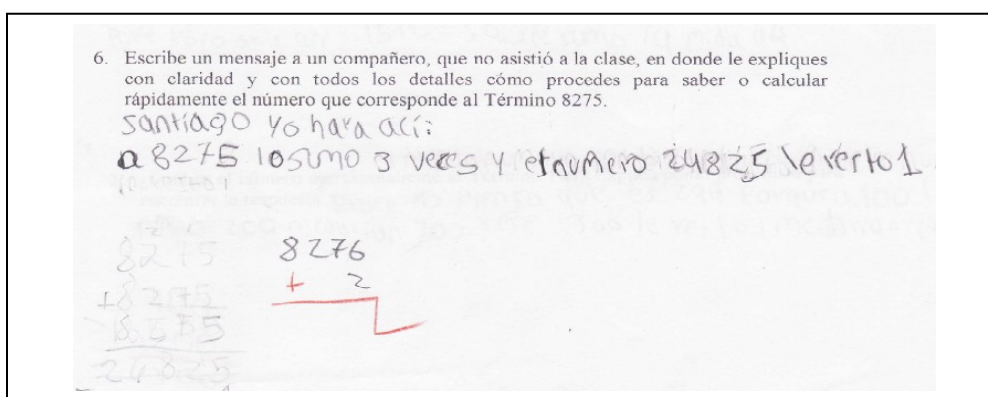 6. Escribe un mensaje a un compañero, que no asistió a la clase, en donde le expliques
con claridad y con todos los detalles cómo procedes para saber o calcular
rápidamente el número que corresponde al Término 8275.
santiago yo hara ací:
a 8275 lo sumo 3 veces y el numero 24825 le resto 1
8275
+8275
24825
8276
+ 2